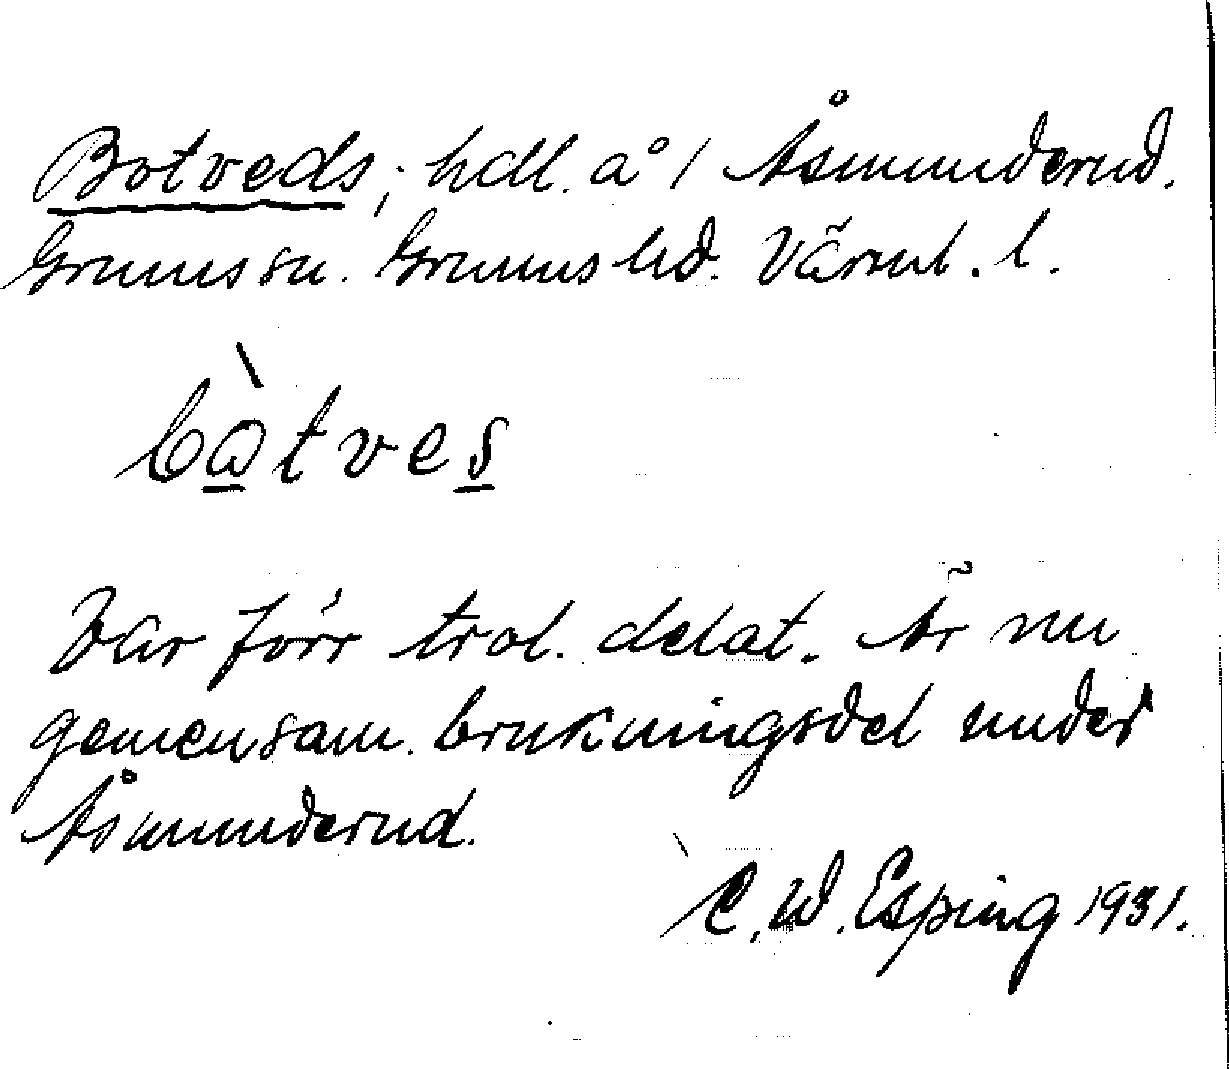 Botveds, hdl. å 1 Åsmunderud.
Grums sn. Grums hd. Värml. l.
bòtves
Var förr trol. delat. Är nu
gemensam brukningsdel under
Åsmunderud.
C. W. Esping 1931.